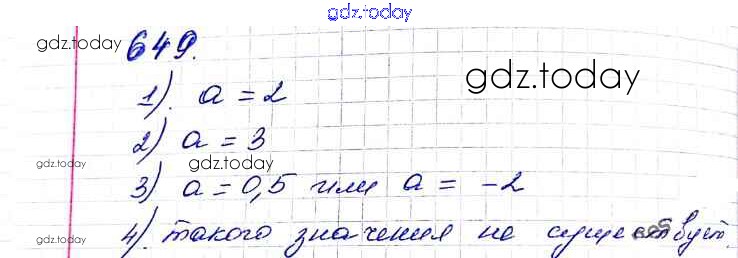 gdz.today
gdz.today 649.
1). a = 2 gdz.today
2) a = 3
gdz.today gdz.today
3) a = 0,5 или a = -2
gdz.today 4). такого значения не существует.